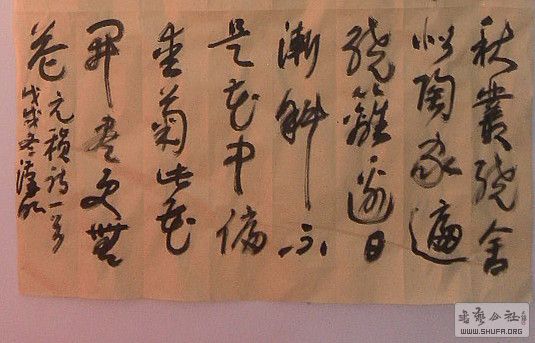 秋叢繞舍
似陶家遍
繞籬邊日
漸斜不
是花中偏
愛菊此花
開盡更無
花
元稹詩一首
戊戌冬
書藝公社
WWW.SHUFA.ORG